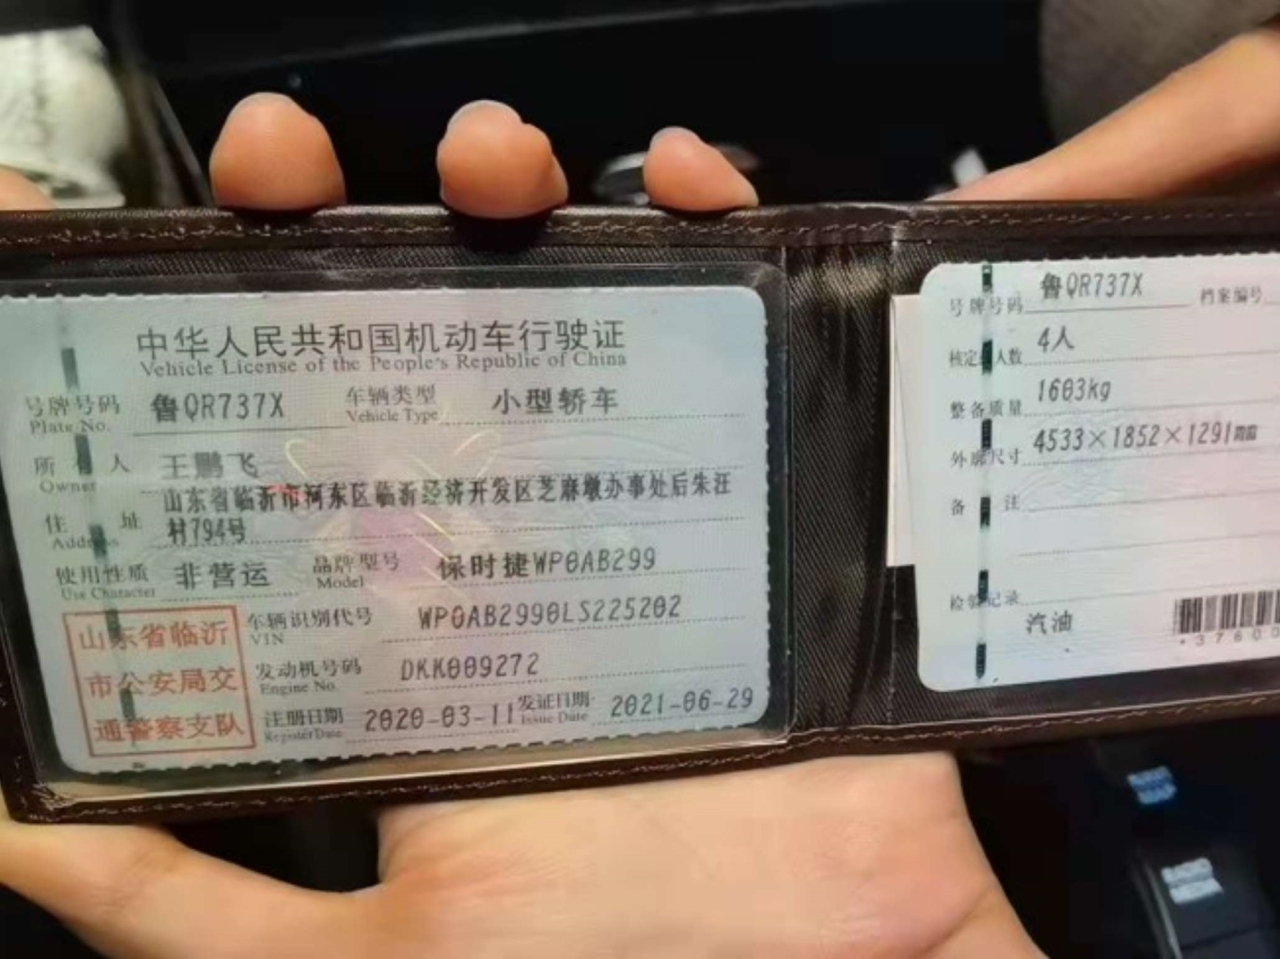 中华人民共和国机动车行驶证
Vehicle License of the People's Republic of China
号牌号码 鲁QR737X 车辆类型 小型轿车
Plate No. Vehicle Type
所有人 王鹏飞
Owner
山东省临沂市河东区临沂经济开发区芝麻墩办事处后朱汪
住址 村794号
Address
使用性质 非营运 品牌型号 保时捷WP0AB299
Use Character Model
山东省临沂
市公安局交
通警察支队
车辆识别代号 WP0AB2990LS225202
VIN
发动机号码 DKK009272
Engine No.
注册日期 2020-03-11 发证日期 2021-06-29
Register Date Issue Date
号牌号码 鲁QR737X 档案编号
核定人数 4人
整备质量 1603kg
外廓尺寸 4533×1852×1291
备注
检验记录
汽油
*37600